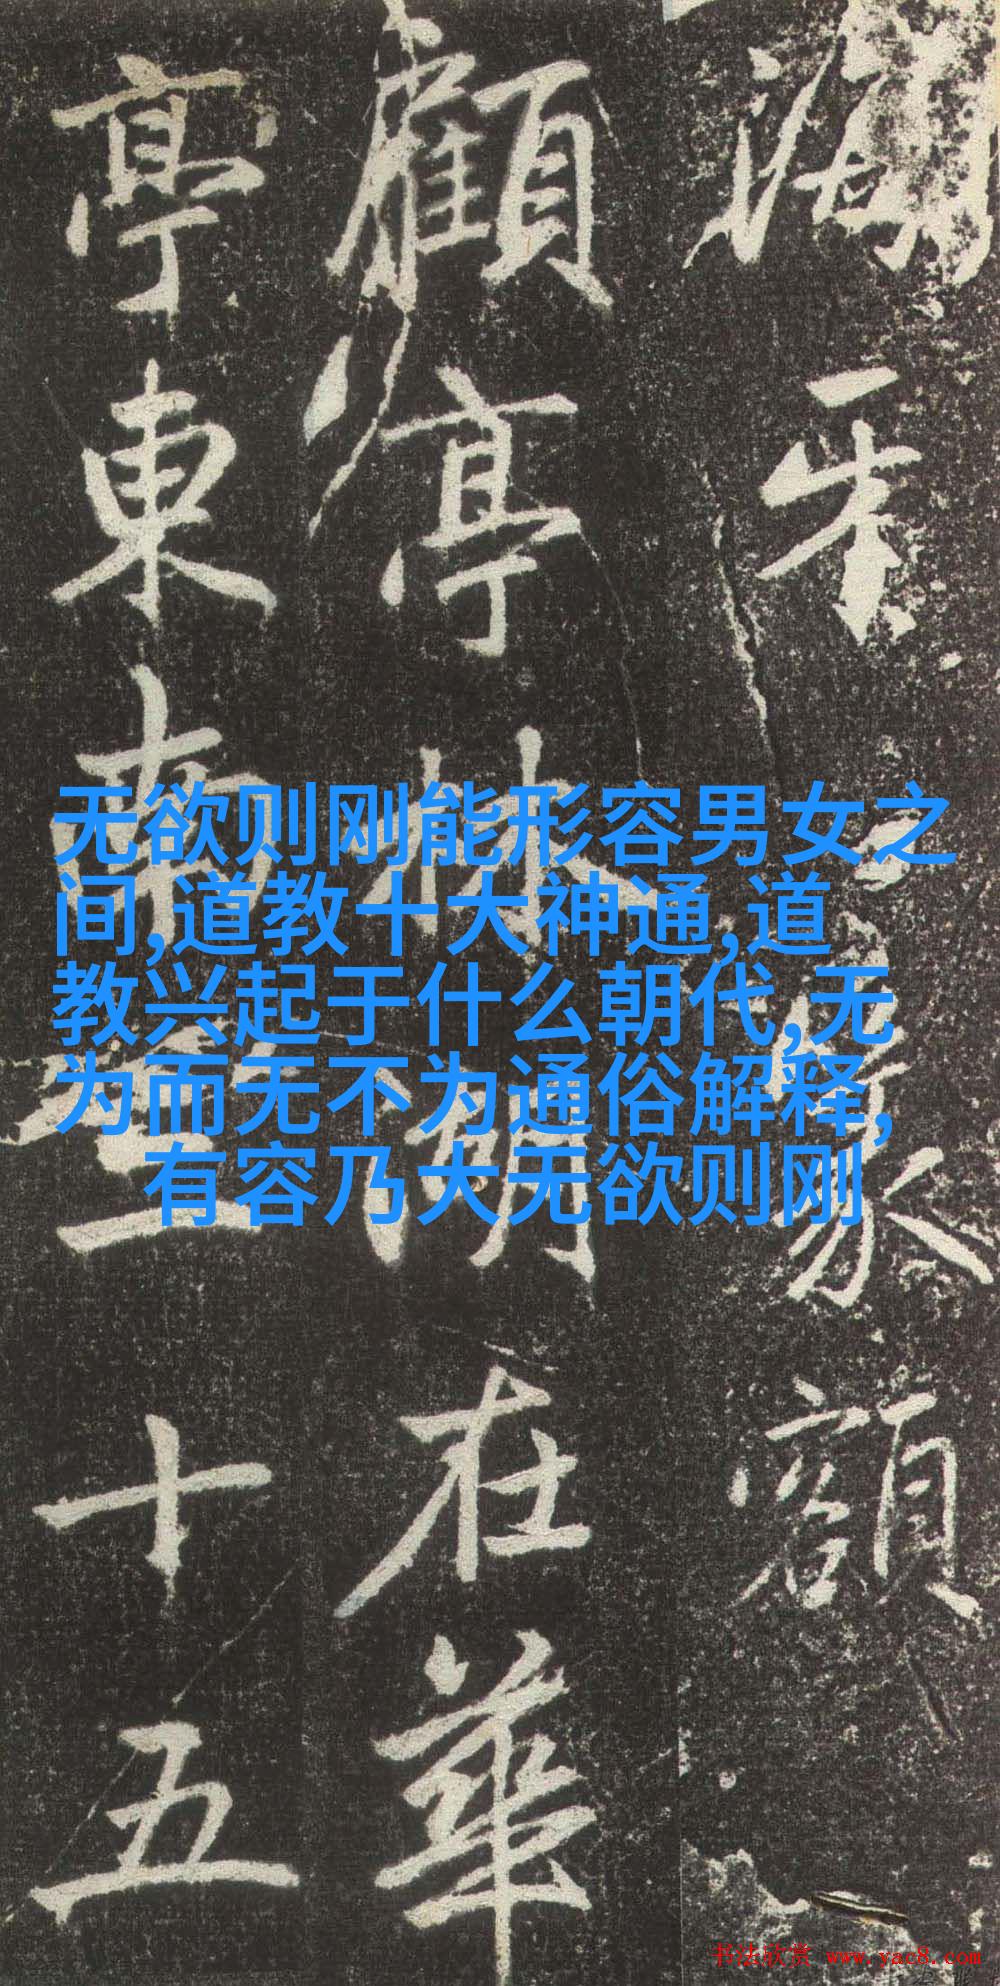 額
顧亭林湖在華
亭東南三十五
无欲则刚能形容男女之
间,道教十大神通,道
教兴起于什么朝代,无
为而无不为通俗解释,
有容乃大无欲则刚
书法欣赏 www.yac8.com